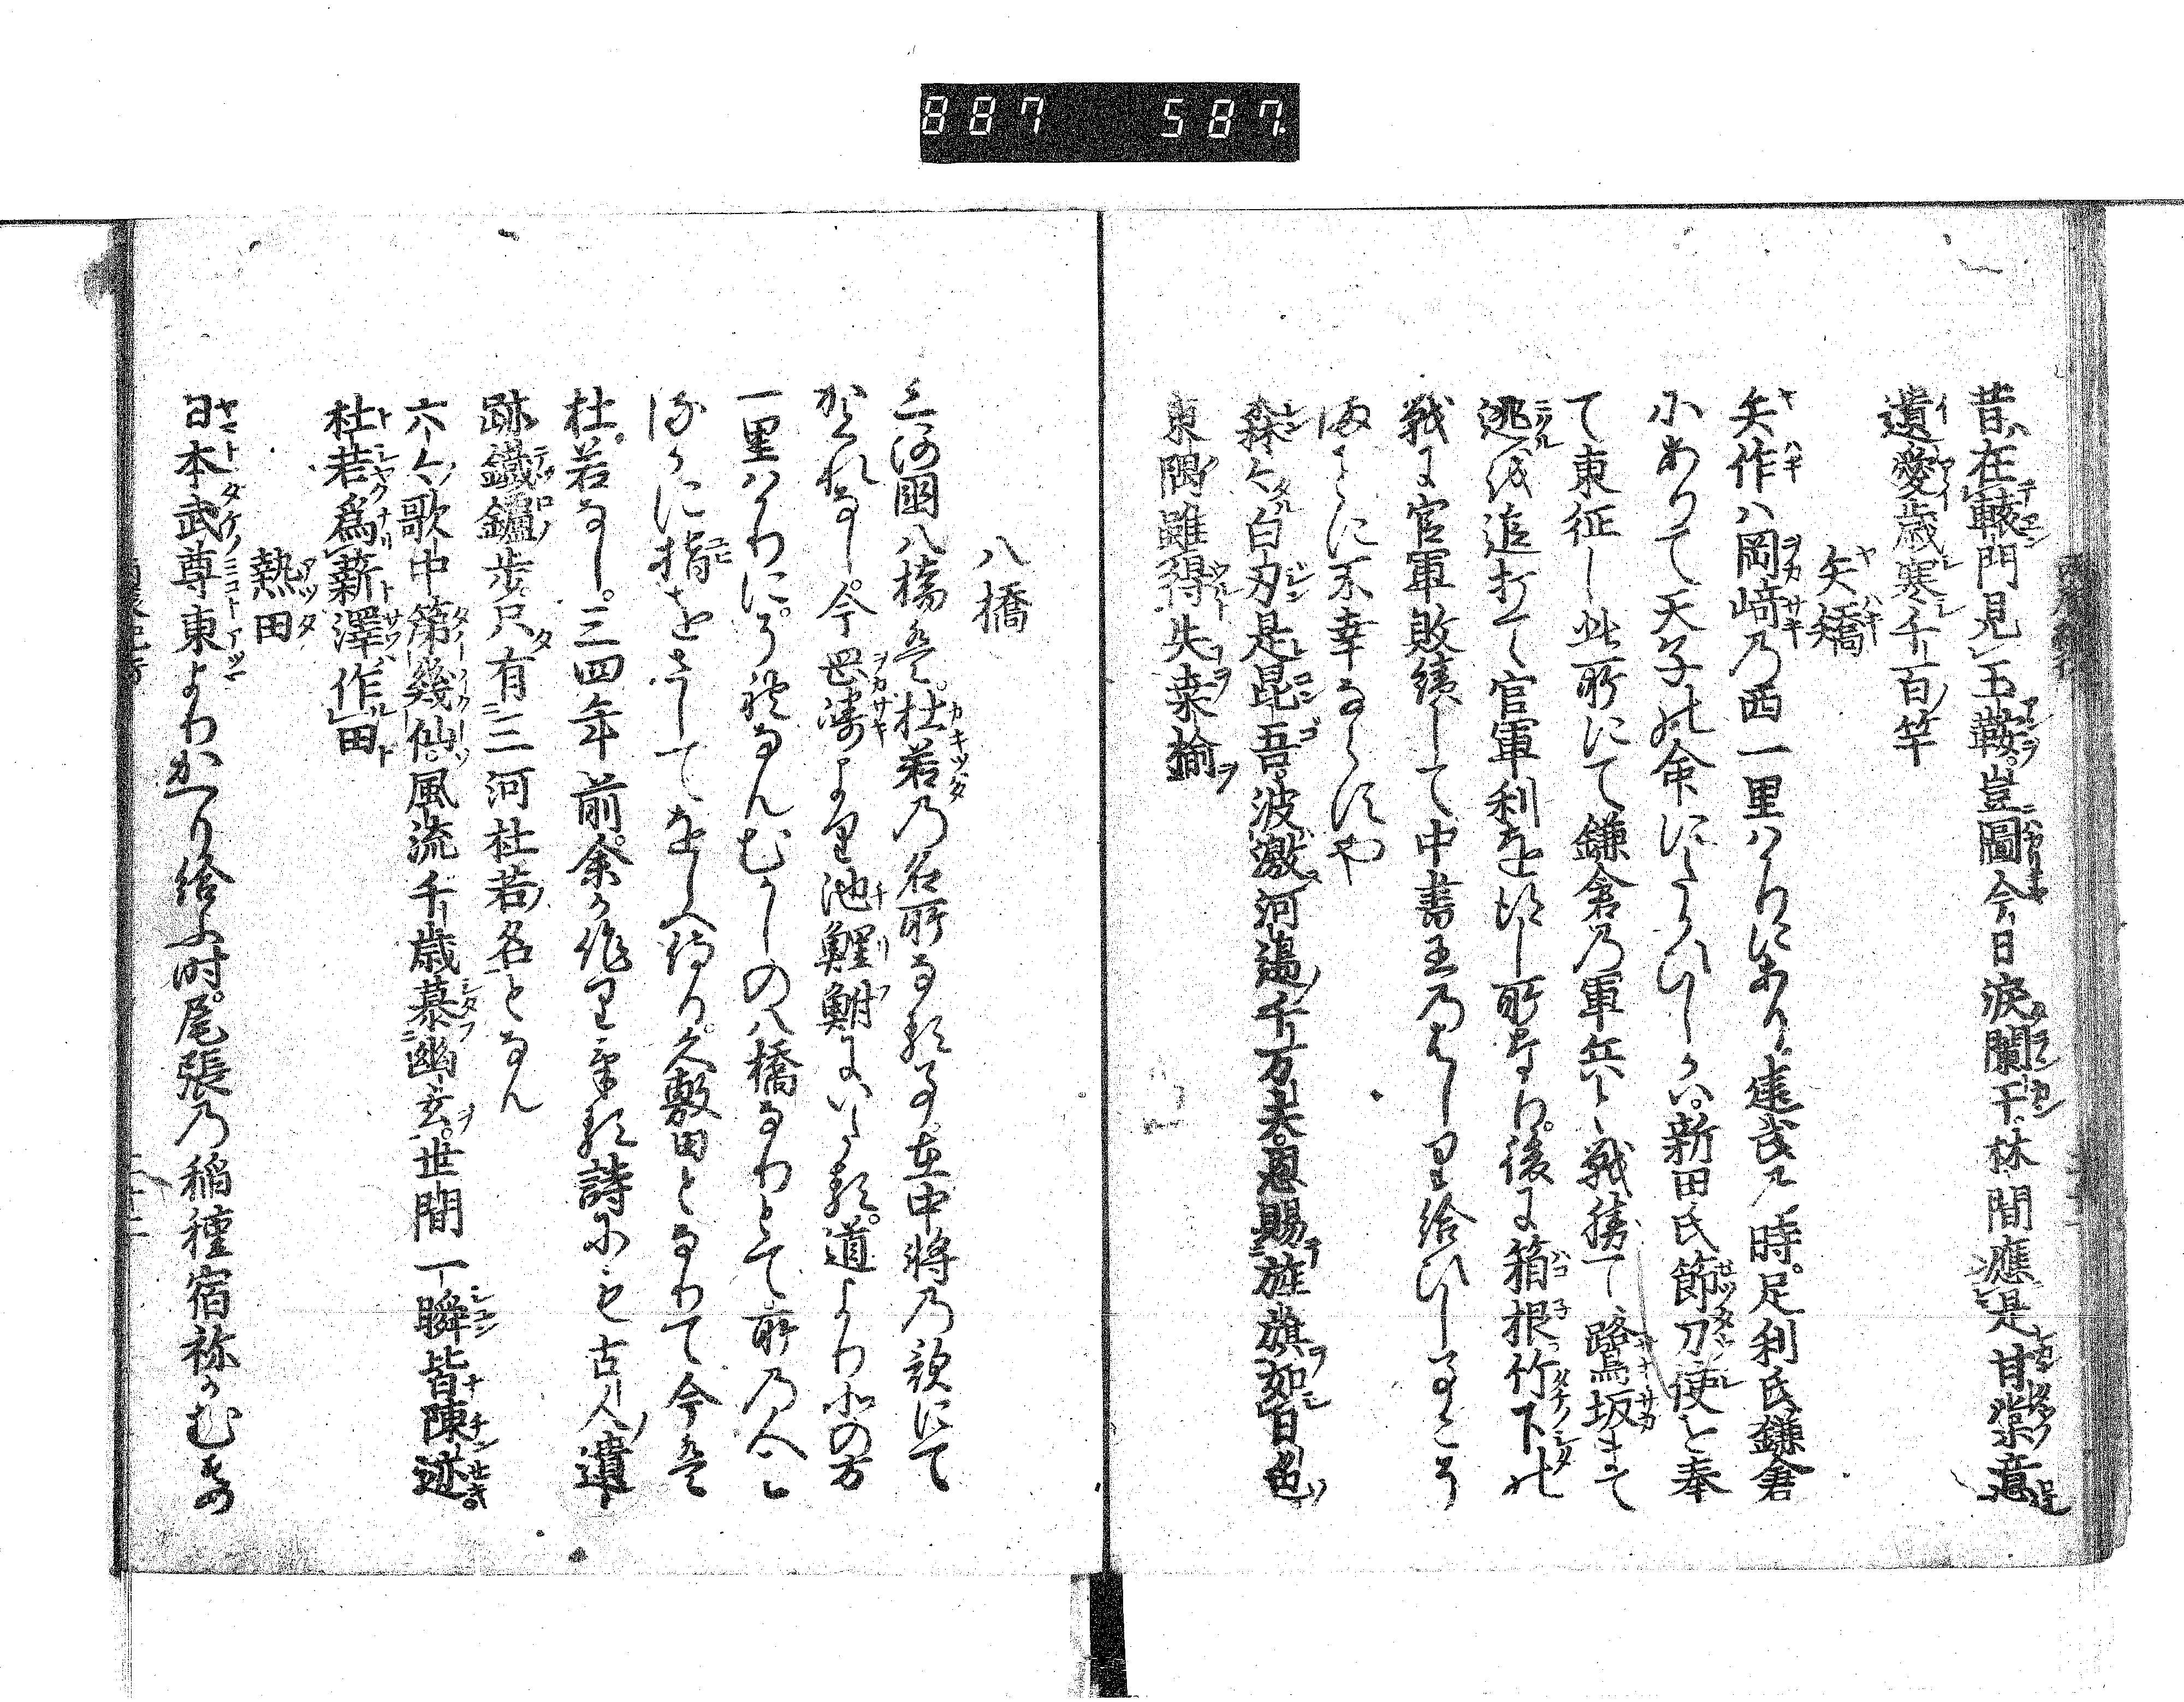 887 587
昔在轅門見玉鞍。豈圖今日淚闌干。林間應是甘棠意
遺愛歳寒千百竿
矢矯
矢作ハ岡﨑乃西一里ハかりにあり。建武ノ時。足利氏鎌倉
にありて天子の命にたかひしかハ。新田氏節刀使を奉
て東征し此所にて鎌倉乃軍兵と戦勝て鷺坂まて
逃ルを追打て官軍利を得し所なり。後に箱根竹下の
戦に官軍敗績して中書王乃はしり給ひし事こそ
まことに不幸ならすや
森々白刃是昆吾。波激河邊千万夫。恩賜旌旗如日色
東隅雖得失桒揄
八橋
三河國八橋は。杜若乃名所なる事。在中將乃歌にて
かくれなし。今岡﨑より池鯉鮒にいたる。道より北の方
一里ハかりに。そ禮なんむかしの八橋なりとて所乃人こ
はるかに指をさしてをしへ侍り。久敷田となりて今は
杜若なし。三四年前余か作りまいる詩にも古人遺
跡鐵鑪歩尺有三河杜若名となん
六々歌中第幾仙。風流千歳慕幽玄。世間一瞬皆陳迹。
杜若爲薪澤作田
熱田
日本武尊東よりかへり給ふ時。尾張乃稲種宿祢かむすめ